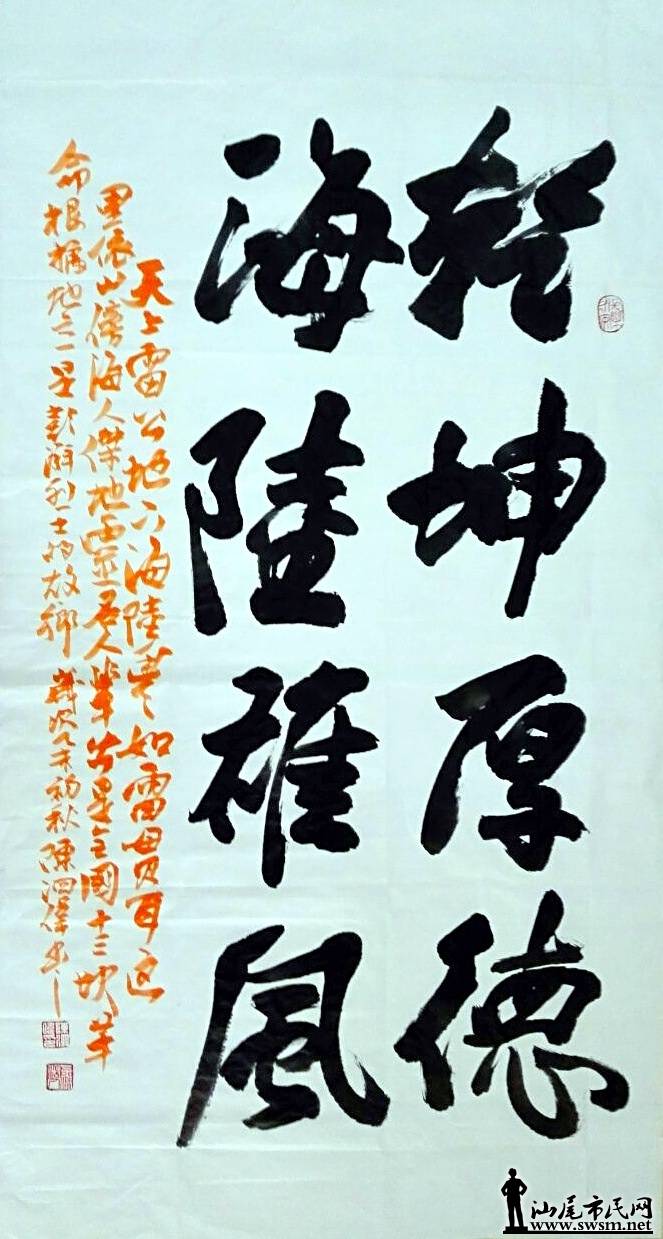 乾坤厚德
海陸雄風
天上雷公地下海陸豐如雷貫耳這
里依山傍海人傑地靈名人輩出是全國十三塊革
命根據地之一是彭湃烈士的故鄉 歲次乙未初秋陳泗偉書
汕尾市民网
www.swsm.net